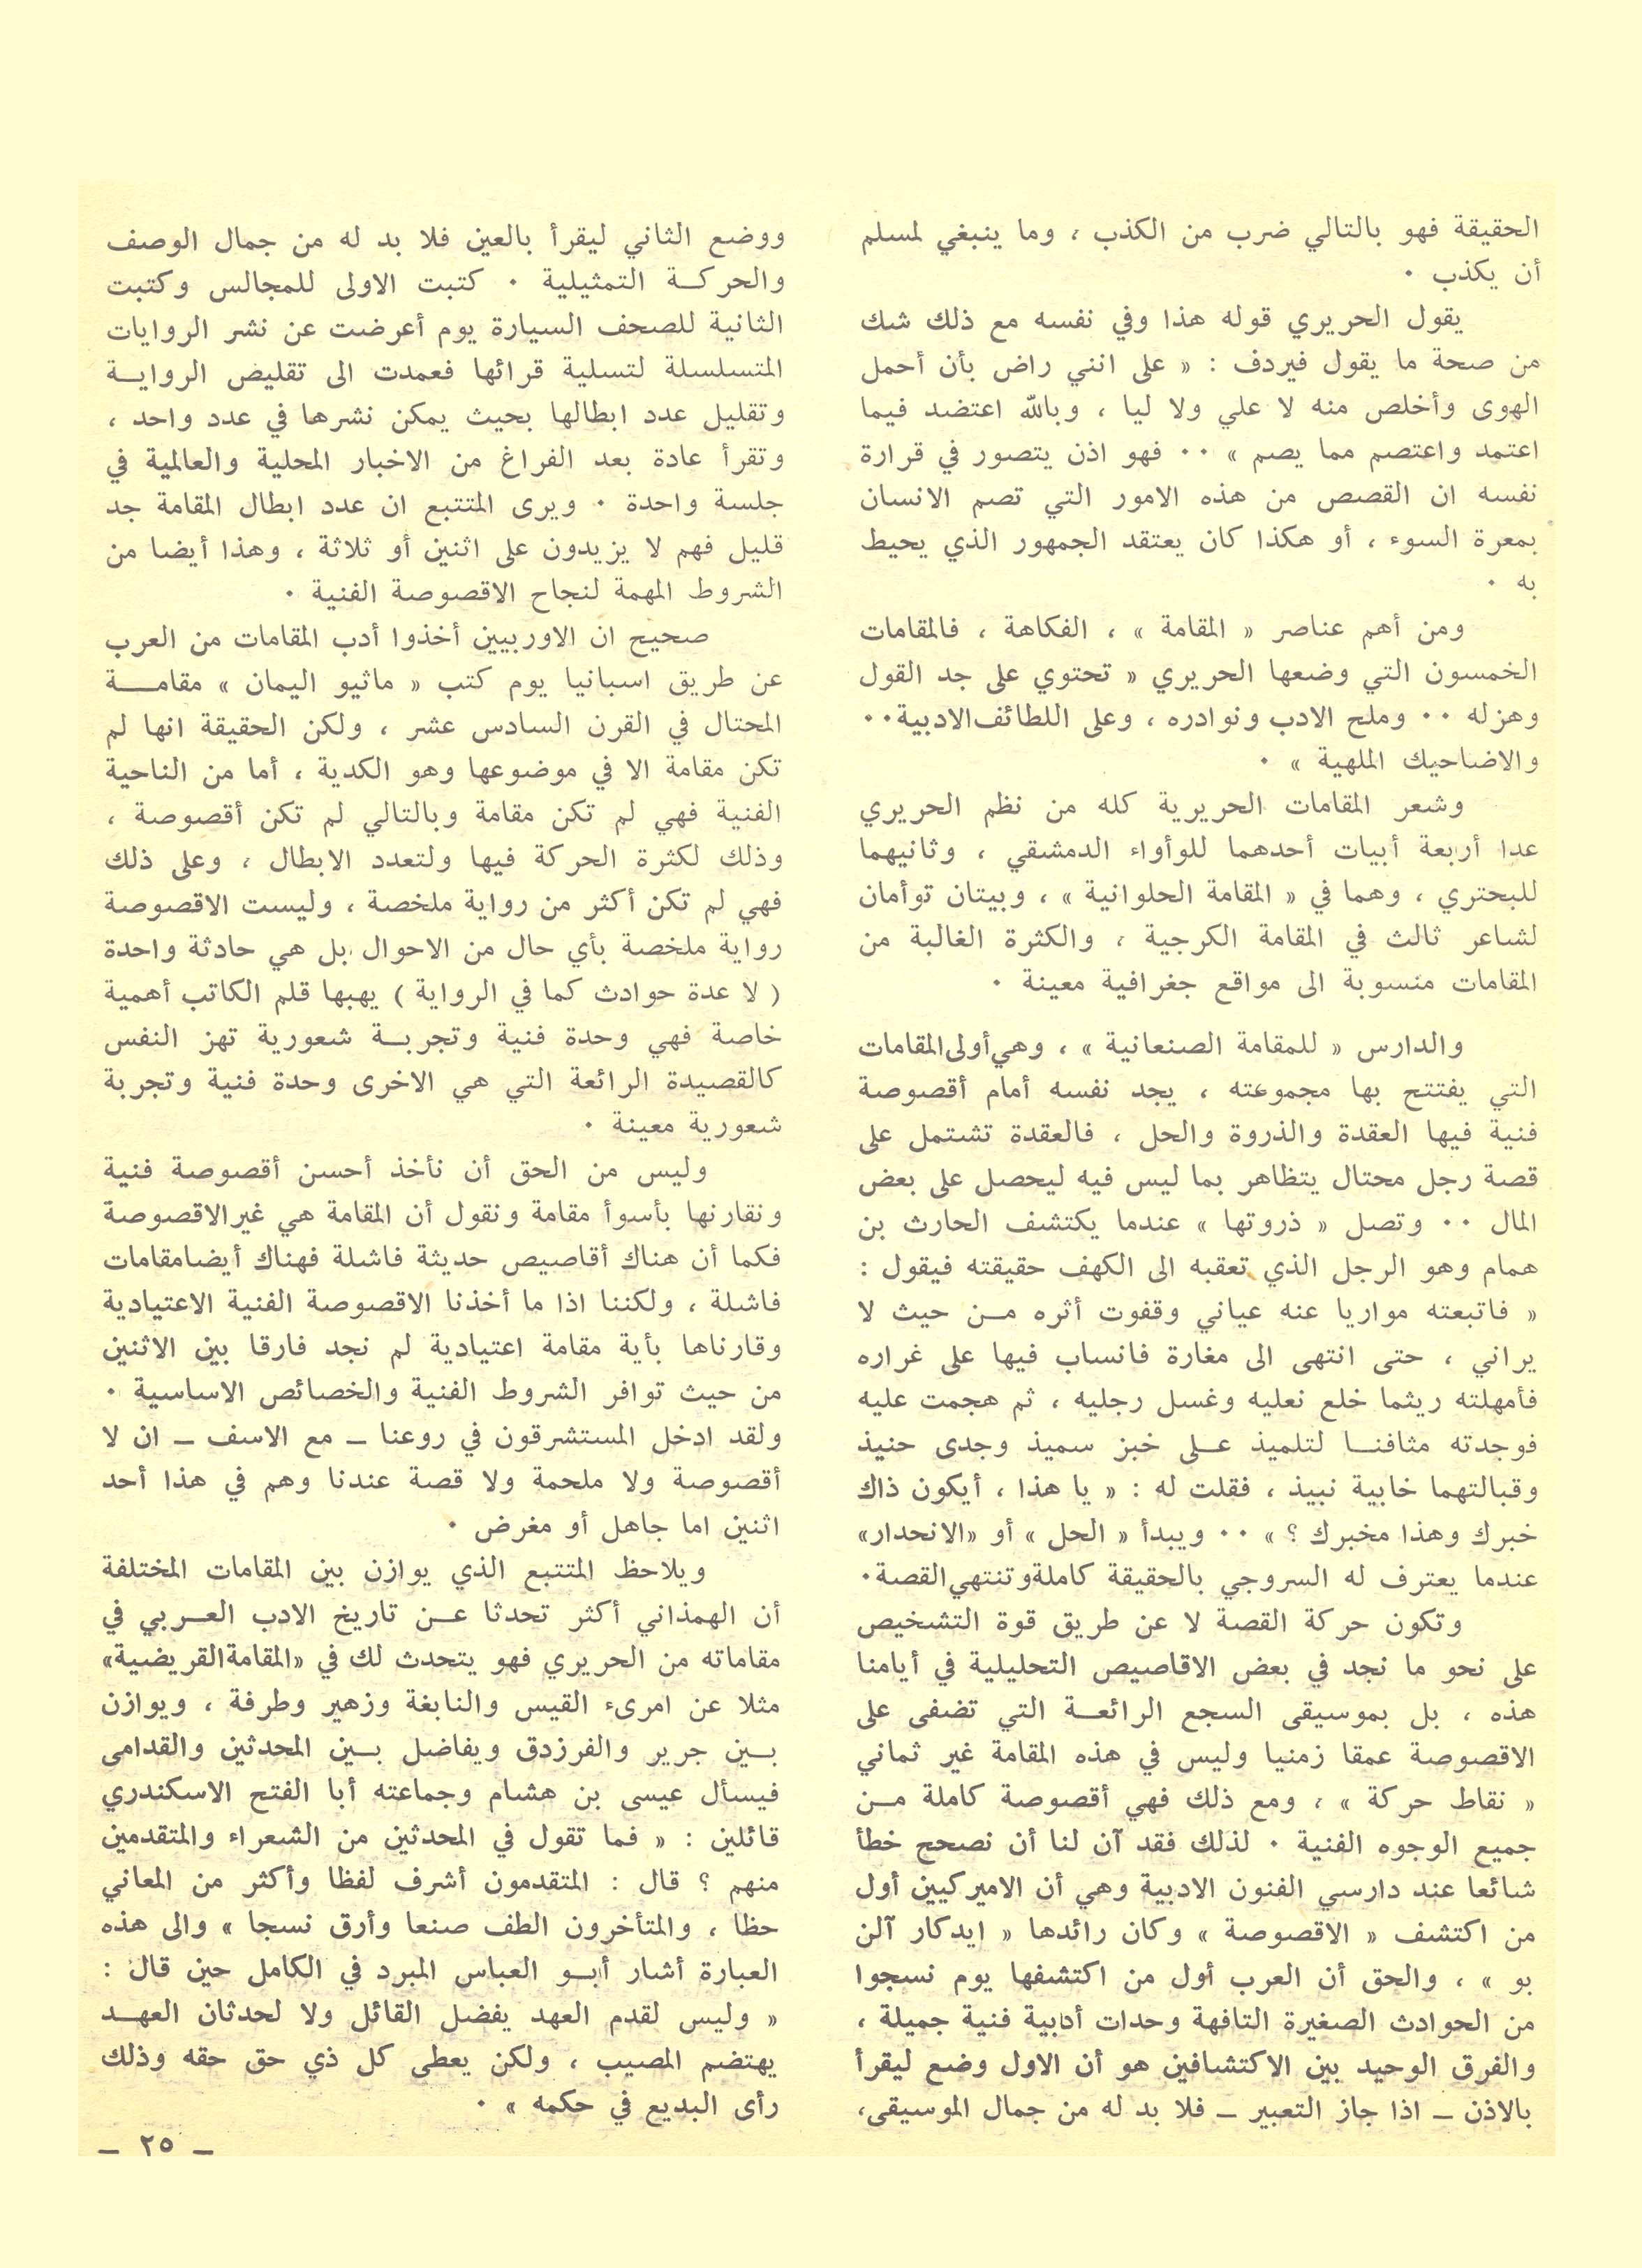 الحقيقة فهو بالتالي ضرب من الكذب ، وما ينبغي لمسلم
أن يكذب ٠
يقول الحريري قوله هذا وفي نفسه مع ذلك شك
من صحة ما يقول فيردف : « على انني راض بأن أحمل
الهوى وأخلص منه لا علي ولا ليا ، وبالله اعتضد فيما
اعتمد واعتصم مما يصم » ٠٠ فهو اذن يتصور في قرارة
نفسه ان القصص من هذه الامور التي تصم الانسان
بمعرة السوء ، أو هكذا كان يعتقد الجمهور الذي يحيط
به ٠
ومن أهم عناصر « المقامة » ، الفكاهة ، فالمقامات
الخمسون التي وضعها الحريري « تحتوي على جد القول
وهزله ٠٠ وملح الادب ونوادره ، وعلى اللطائف الادبية٠٠
والاضاحيك الملهية » ٠
وشعر المقامات الحريرية كله من نظم الحريري
عدا أربعة أبيات أحدهما للوأواء الدمشقي ، وثانيهما
للبحتري ، وهما في « المقامة الحلوانية » ، وبيتان توأمان
لشاعر ثالث في المقامة الكرجية ، والكثرة الغالبة من
المقامات منسوبة الى مواقع جغرافية معينة ٠
والدارس « للمقامة الصنعانية » ، وهي أولى المقامات
التي يفتتح بها مجموعته ، يجد نفسه أمام أقصوصة
فنية فيها العقدة والذروة والحل ، فالعقدة تشتمل على
قصة رجل محتال يتظاهر بما ليس فيه ليحصل على بعض
المال ٠٠ وتصل « ذروتها » عندما يكتشف الحارث بن
همام وهو الرجل الذي تعقبه الى الكهف حقيقته فيقول :
« فاتبعته مواريا عنه عياني وقفوت أثره مـن حيث لا
يراني ، حتى انتهى الى مغارة فانساب فيها على غراره
فأمهلته ريثما خلع نعليه وغسل رجليه ، ثم هجمت عليه
فوجدته مثافنـا لتلميذ عـلى خبز سميذ وجدى حنيذ
وقبالتهما خابية نبيذ ، فقلت له : « يا هذا ، أيكون ذاك
خبرك وهذا مخبرك ؟ » ٠٠ ويبدأ « الحل » أو «الانحدار»
عندما يعترف له السروجي بالحقيقة كاملة وتنتهي القصة٠
وتكون حركة القصة لا عن طريق قوة التشخيص
على نحو ما نجد في بعض الاقاصيص التحليلية في أيامنا
هذه ، بل بموسيقى السجع الرائعـة التي تضفى على
الاقصوصة عمقا زمنيا وليس في هذه المقامة غير ثماني
« نقاط حركة » ، ومع ذلك فهي أقصوصة كاملة مـن
جميع الوجوه الفنية ٠ لذلك فقد آن لنا أن نصحح خطأ
شائعا عند دارسي الفنون الادبية وهي أن الاميركيين أول
من اكتشف « الاقصوصة » وكان رائدها « ايدكار آلن
بو » ، والحق أن العرب أول من اكتشفها يوم نسجوا
من الحوادث الصغيرة التافهة وحدات أدبية فنية جميلة ،
والفرق الوحيد بين الاكتشافين هو أن الاول وضع ليقرأ
بالاذن ـ اذا جاز التعبير ـ فلا بد له من جمال الموسيقى،
ووضع الثاني ليقرأ بالعين فلا بد له من جمال الوصف
والحركـة التمثيلية ٠ كتبت الاولى للمجالس وكتبت
الثانية للصحف السيارة يوم أعرضت عن نشر الروايات
المتسلسلة لتسلية قرائها فعمدت الى تقليص الروايـة
وتقليل عدد ابطالها بحيث يمكن نشرها في عدد واحد ،
وتقرأ عادة بعد الفراغ من الاخبار المحلية والعالمية في
جلسة واحدة ٠ ويرى المتتبع ان عدد ابطال المقامة جد
قليل فهم لا يزيدون على اثنين أو ثلاثة ، وهذا أيضا من
الشروط المهمة لنجاح الاقصوصة الفنية ٠
صحيح ان الاوربيين أخذوا أدب المقامات من العرب
عن طريق اسبانيا يوم كتب « ماثيو اليمان » مقامـة
المحتال في القرن السادس عشر ، ولكن الحقيقة انها لم
تكن مقامة الا في موضوعها وهو الكدية ، أما من الناحية
الفنية فهي لم تكن مقامة وبالتالي لم تكن أقصوصة ،
وذلك لكثرة الحركة فيها ولتعدد الابطال ، وعلى ذلك
فهي لم تكن أكثر من رواية ملخصة ، وليست الاقصوصة
رواية ملخصة بأي حال من الاحوال بل هي حادثة واحدة
( لا عدة حوادث كما في الرواية ) يهبها قلم الكاتب أهمية
خاصة فهي وحدة فنية وتجربـة شعورية تهز النفس
كالقصيدة الرائعة التي هي الاخرى وحدة فنية وتجربة
شعورية معينة ٠
وليس من الحق أن نأخذ أحسن أقصوصة فنية
ونقارنها بأسوأ مقامة ونقول أن المقامة هي غير الاقصوصة
فكما أن هناك أقاصيص حديثة فاشلة فهناك أيضا مقامات
فاشلة ، ولكننا اذا ما أخذنا الاقصوصة الفنية الاعتيادية
وقارناها بأية مقامة اعتيادية لم نجد فارقا بين الاثنين
من حيث توافر الشروط الفنية والخصائص الاساسية ٠
ولقد ادخل المستشرقون في روعنا ـ مع الاسف ـ ان لا
أقصوصة ولا ملحمة ولا قصة عندنا وهم في هذا أحد
اثنين اما جاهل أو مغرض ٠
ويلاحظ المتتبع الذي يوازن بين المقامات المختلفة
أن الهمذاني أكثر تحدثا عـن تاريخ الادب العـربي في
مقاماته من الحريري فهو يتحدث لك في «المقامة القريضية»
مثلا عن امرىء القيس والنابغة وزهير وطرفة ، ويوازن
بـين جرير والفرزدق ويفاضل بـين المحدثين والقدامى
فيسأل عيسى بن هشام وجماعته أبا الفتح الاسكندري
قائلين : « فما تقول في المحدثين من الشعراء والمتقدمين
منهم ؟ قال : المتقدمون أشرف لفظا وأكثر من المعاني
حظا ، والمتأخرون الطف صنعا وأرق نسجا » والى هذه
العبارة أشار أبـو العباس المبرد في الكامل حين قال :
« وليس لقدم العهد يفضل القائل ولا لحدثان العهـد
يهتضم المصيب ، ولكن يعطى كل ذي حق حقه وذلك
رأى البديع في حكمه » ٠
ـ ٢٥ ـ